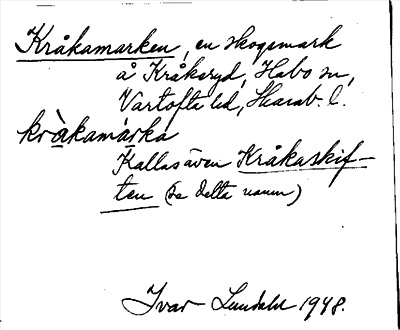 Kråkamarken, en skogsmark
å Kråkeryd, Habo sn,
Vartofta hd, Skarab. l.
kràkamárka
Kallas även Kråkaskif-
ten (se detta namn)
Ivar Lundahl 1948.